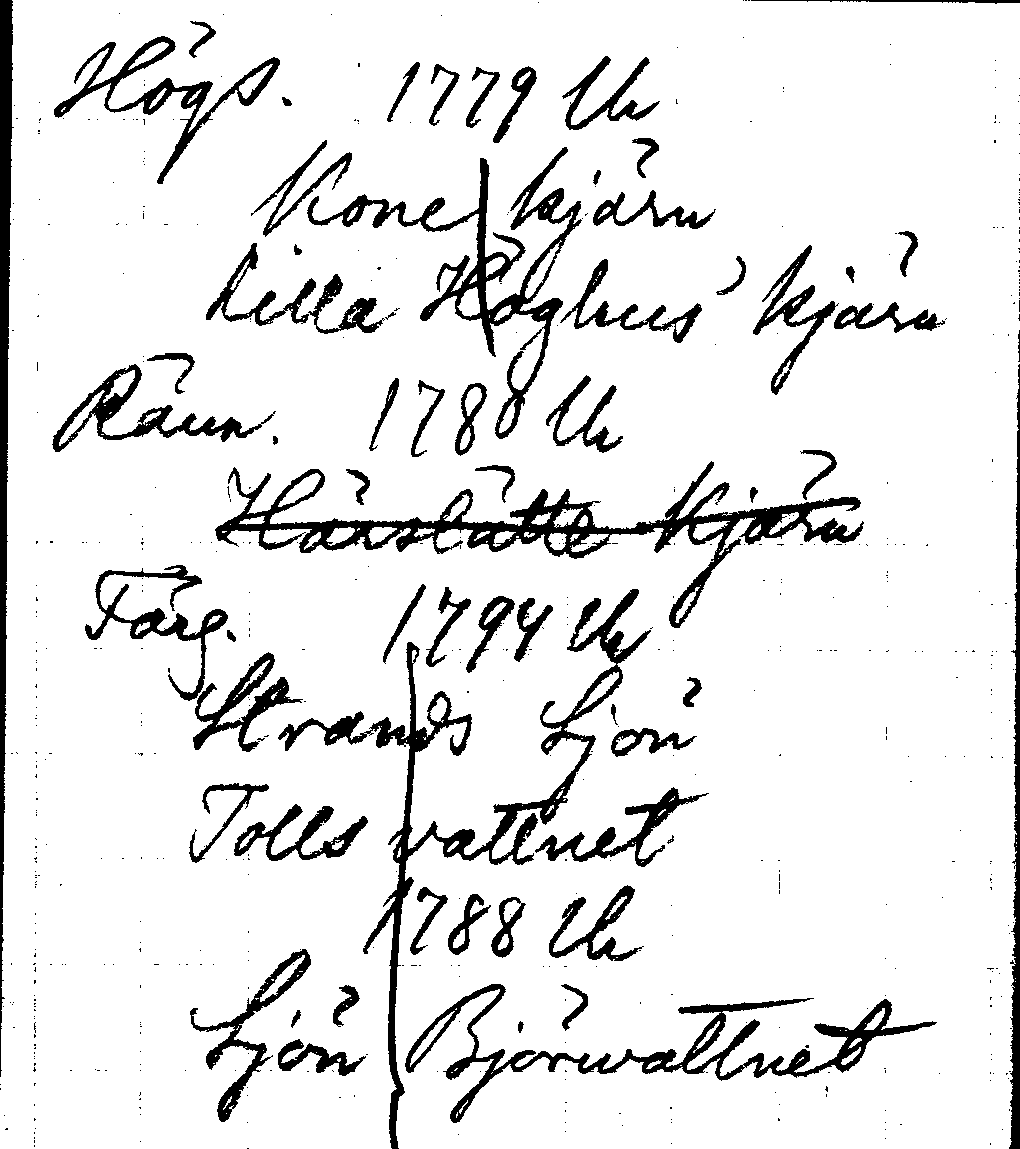 Högs. 1779 Uh
Kone kjärn
Lilla Höghus' kjärn
Ränn. 1788 Uh
Hårslätte kjärn
Färg. 1794 Uh
Strands Sjön
Tolls vattnet
1788 Uh
Sjön Björwattnet